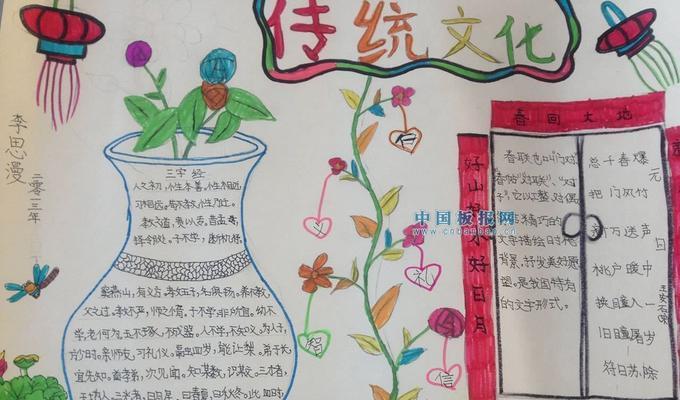 传统文化
李思漫
二零一三年
三字经
人之初,性本善,性相近,
习相远。苟不教,性乃迁。
教之道,贵以专。昔孟母,
择邻处。子不学,断机杼。
窦燕山,有义方。教五子,名俱扬。养不教,
父之过。教不严,师之惰。子不学,非所宜。幼不
学,老何为。玉不琢,不成器。人不学,不知义。为人子,
方少时。亲师友,习礼仪。
融四岁,能让梨。弟于长,
宜先知。首孝弟,次见闻。知某数,识某文。
曰春夏,曰秋冬。此四时
仁
义
礼
智
信
中国板报网
春回大地
好山好水好日月
春联也叫“门对”、
春帖“对联”、“对
子”,它以工整、对偶、
简洁精巧的
文字描绘时代
背景,抒发美好愿
望,是我国特有
的文学形式。
元日
王安石
爆竹声中一岁除
春风送暖入屠苏
千门万户曈曈日
总把新桃换旧符